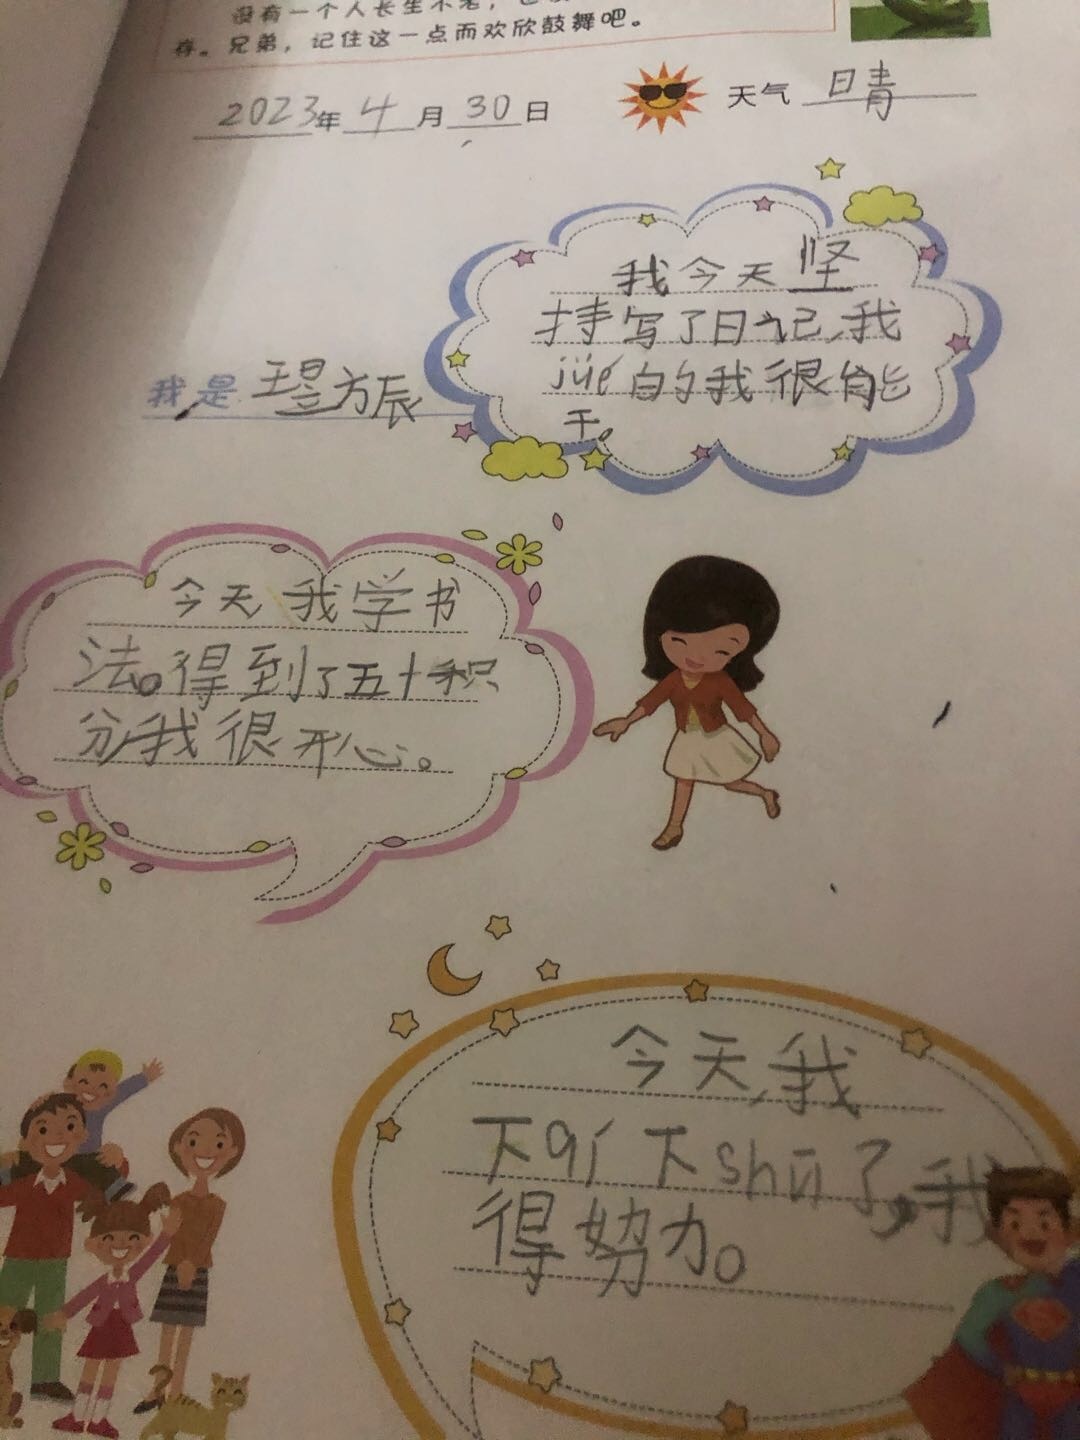 没有一个人长生不老，也
存。兄弟，记住这一点而欢欣鼓舞吧。
2023年4月30日 天气 晴
我今天坚
持写了日记,我
我是
jüé的我很能
干。
今天我学书
法。得到了五十积
分,我很开心。
今天,我
下qí下shū了,我
得努力。